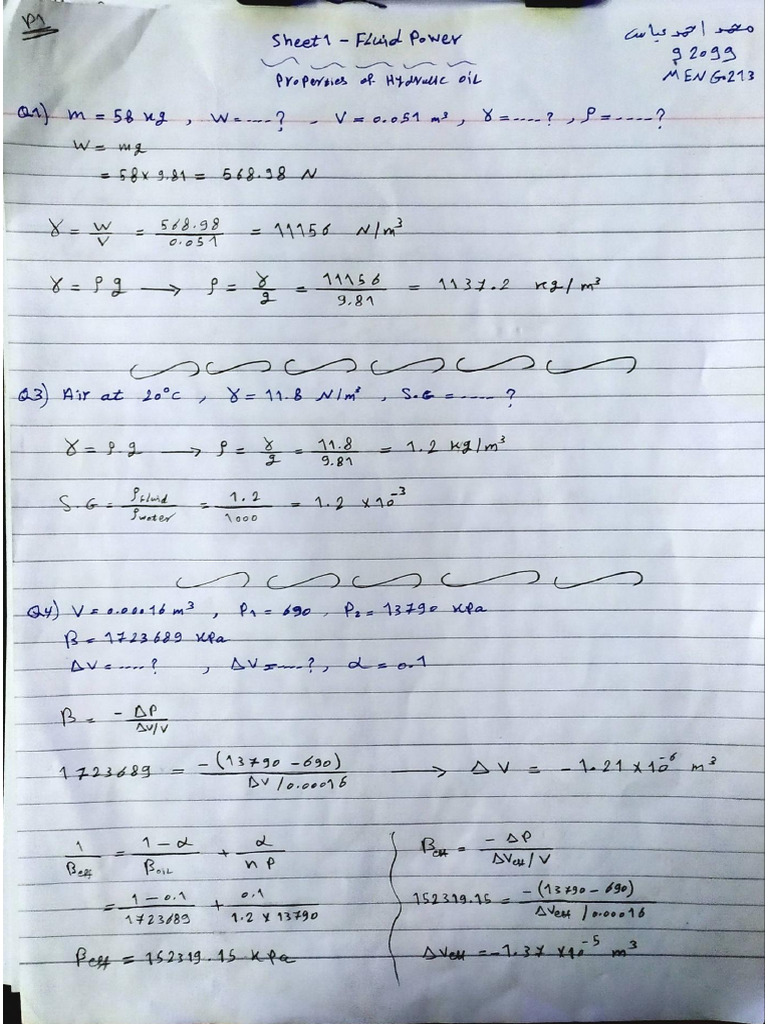 P1
Sheet 1 - Fluid Power
محمد احمد عباس
Properties of Hydraulic oil
92099
MENG213
Q1) m = 58 kg , W = ....? , V = 0.051 m³ , γ = ....? , ρ = .....?
W = mg
= 58 × 9.81 = 568.98 N
γ = W/V = 568.98/0.051 = 11156 N/m³
γ = ρ g → ρ = γ/g = 11156/9.81 = 1137.2 kg/m³
Q3) Air at 20°C , γ = 11.8 N/m³ , S.G = ..... ?
γ = ρ.g → ρ = γ/g = 11.8/9.81 = 1.2 kg/m³
S.G = ρfluid/ρwater = 1.2/1000 = 1.2 × 10⁻³
Q4) V = 0.00016 m³ , P₁ = 690 , P₂ = 13790 kPa
β = 1723689 kPa
ΔV = ....? , ΔV = ....? , α = 0.1
β = -ΔP/(ΔV/V)
1723689 = -(13790 - 690)/(ΔV/0.00016) → ΔV = -1.21 × 10⁻⁶ m³
1/βeff = (1-α)/βoil + α/(n P)
= (1-0.1)/1723689 + 0.1/(1.2 × 13790)
βeff = 152319.15 kPa
βeff = -ΔP/(ΔVeff/V)
152319.15 = -(13790 - 690)/(ΔVeff/0.00016)
ΔVeff = -1.37 × 10⁻⁵ m³